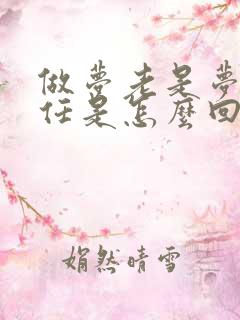 做夢老是夢
任是怎麼回
娟然晴雪